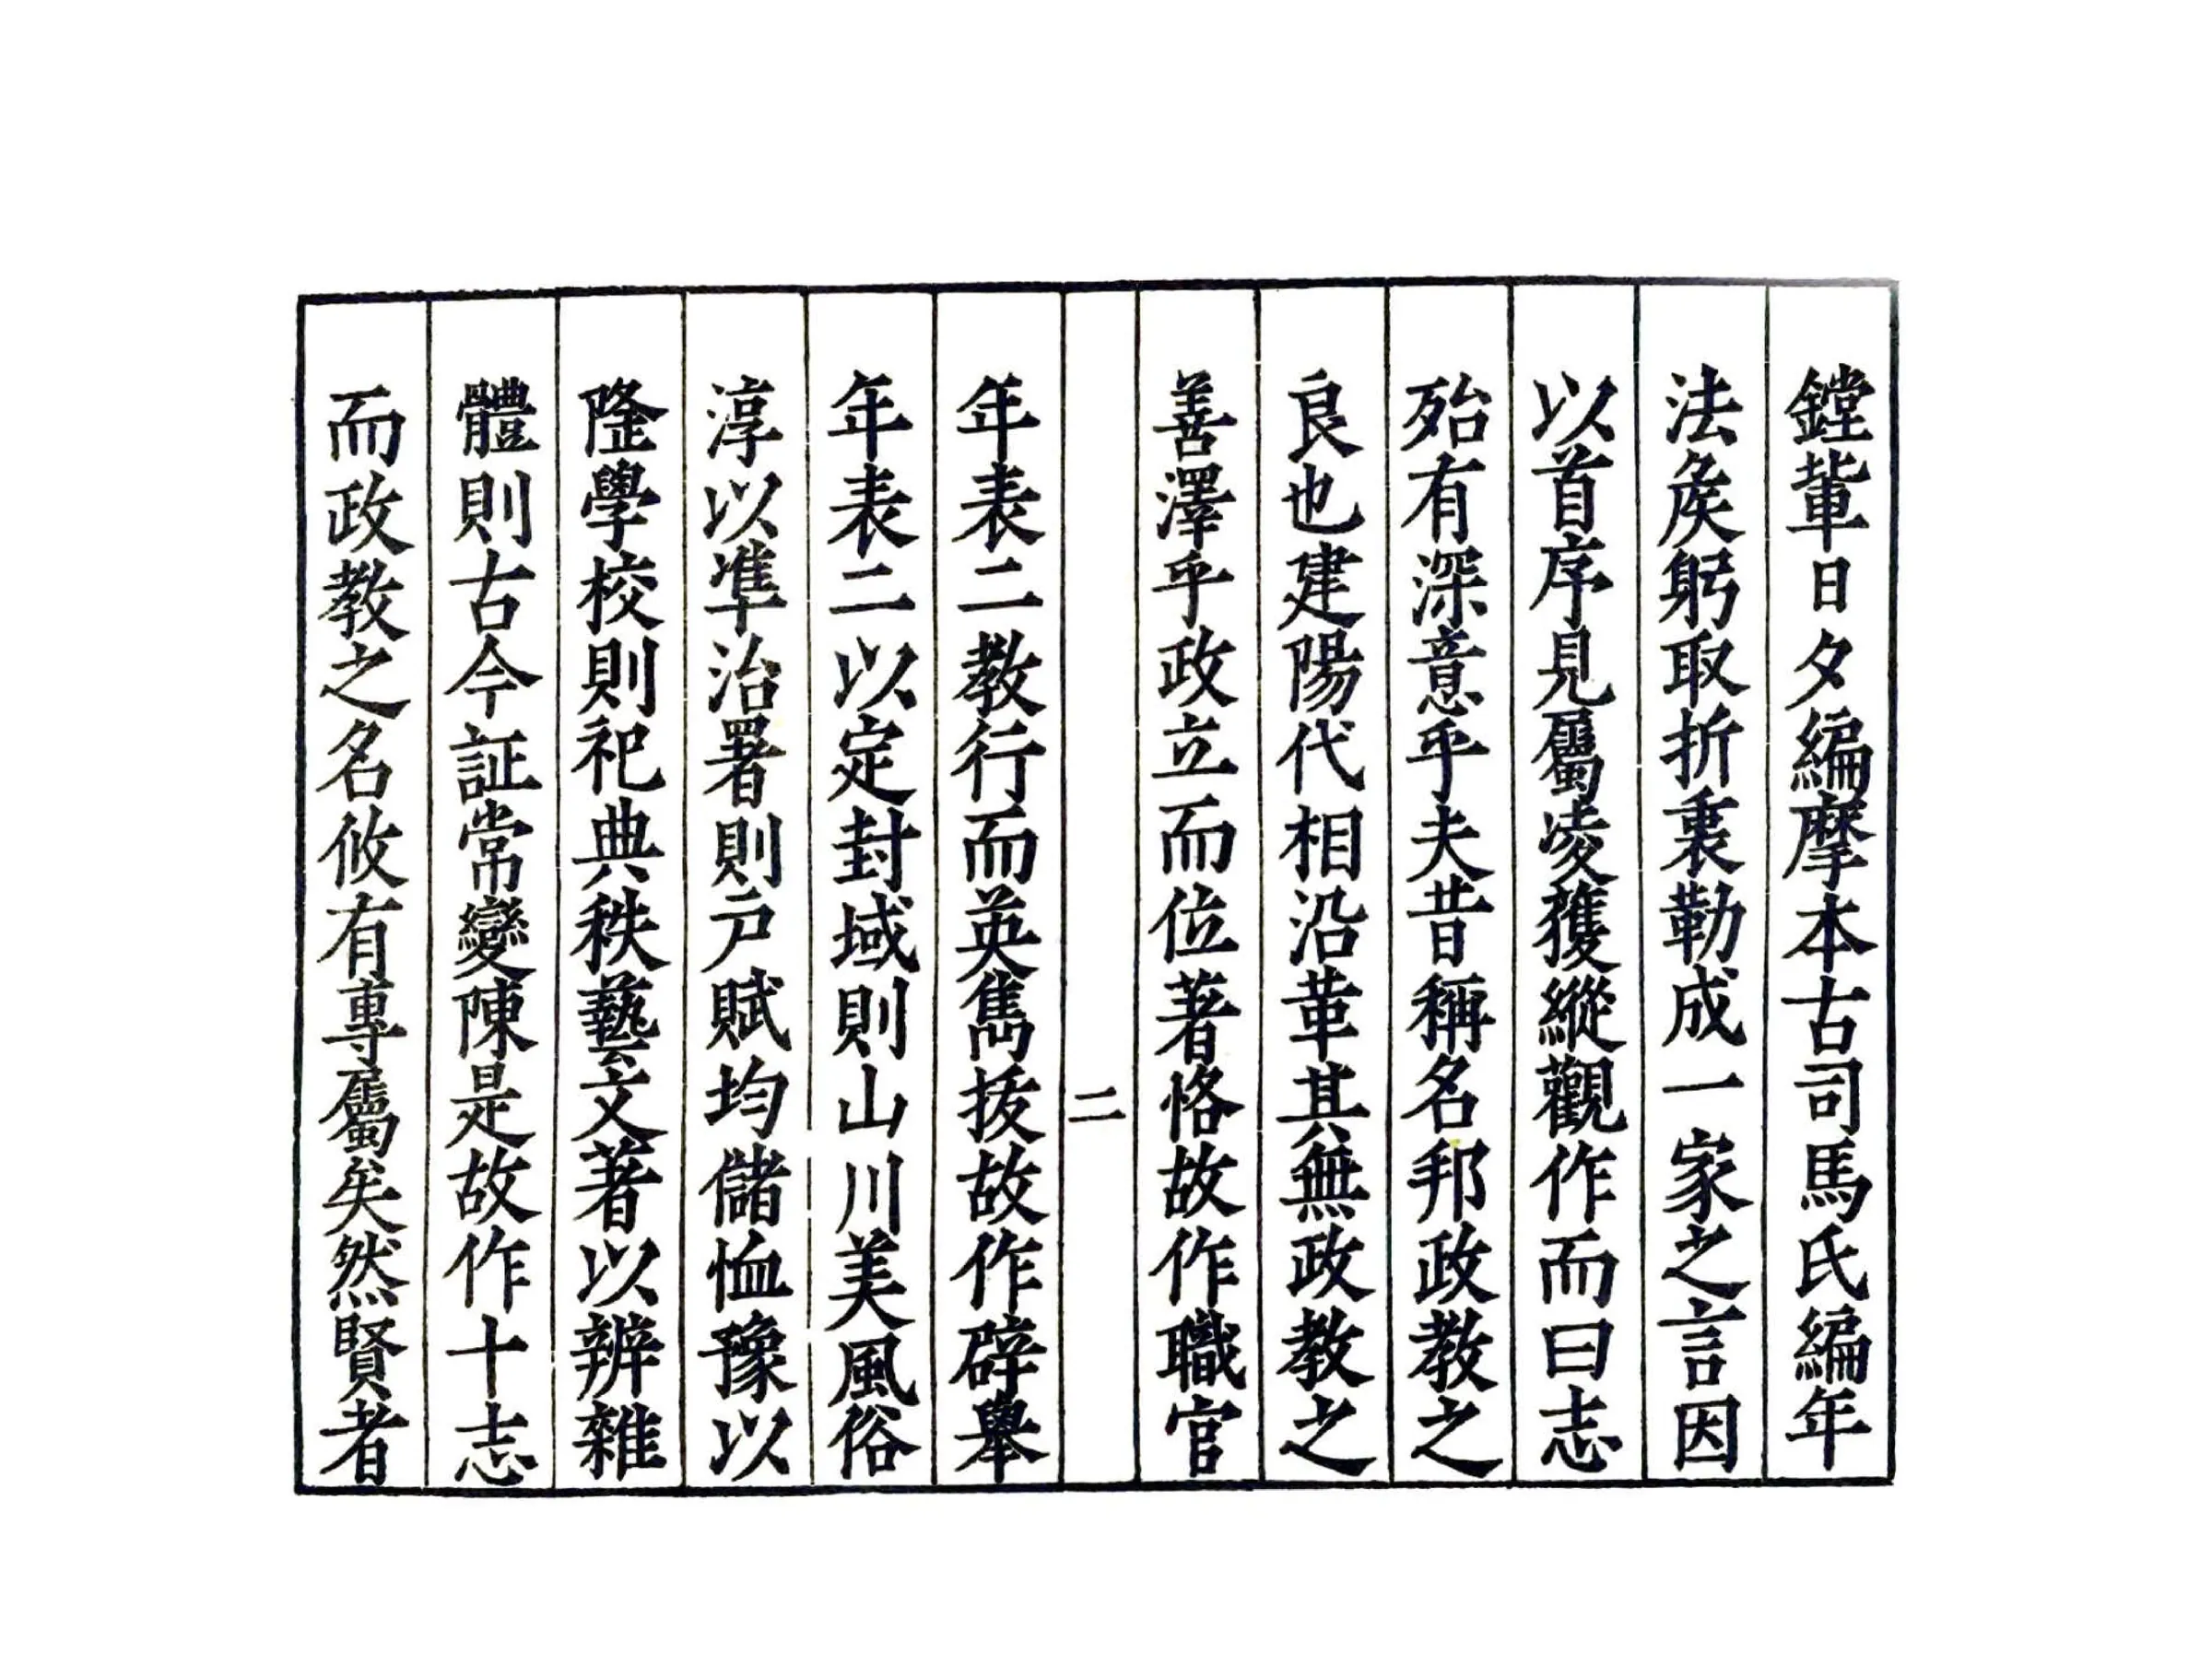 鏜輩日夕編摩本古司馬氏編年
法矦躬取折裏勒成一家之言因
以首序見屬凌獲縱觀作而曰志
殆有深意乎夫昔稱名邦政教之
良也建陽代相沿革其無政教之
善澤乎政立而位著恪故作職官
二
年表二教行而英雋拔故作辟舉
年表二以定封域則山川美風俗
淳以準治署則戶賦均儲恤豫以
隆學校則祀典秩藝文著以辨雜
體則古今証常變陳是故作十志
而政教之名攸有專屬矣然賢者